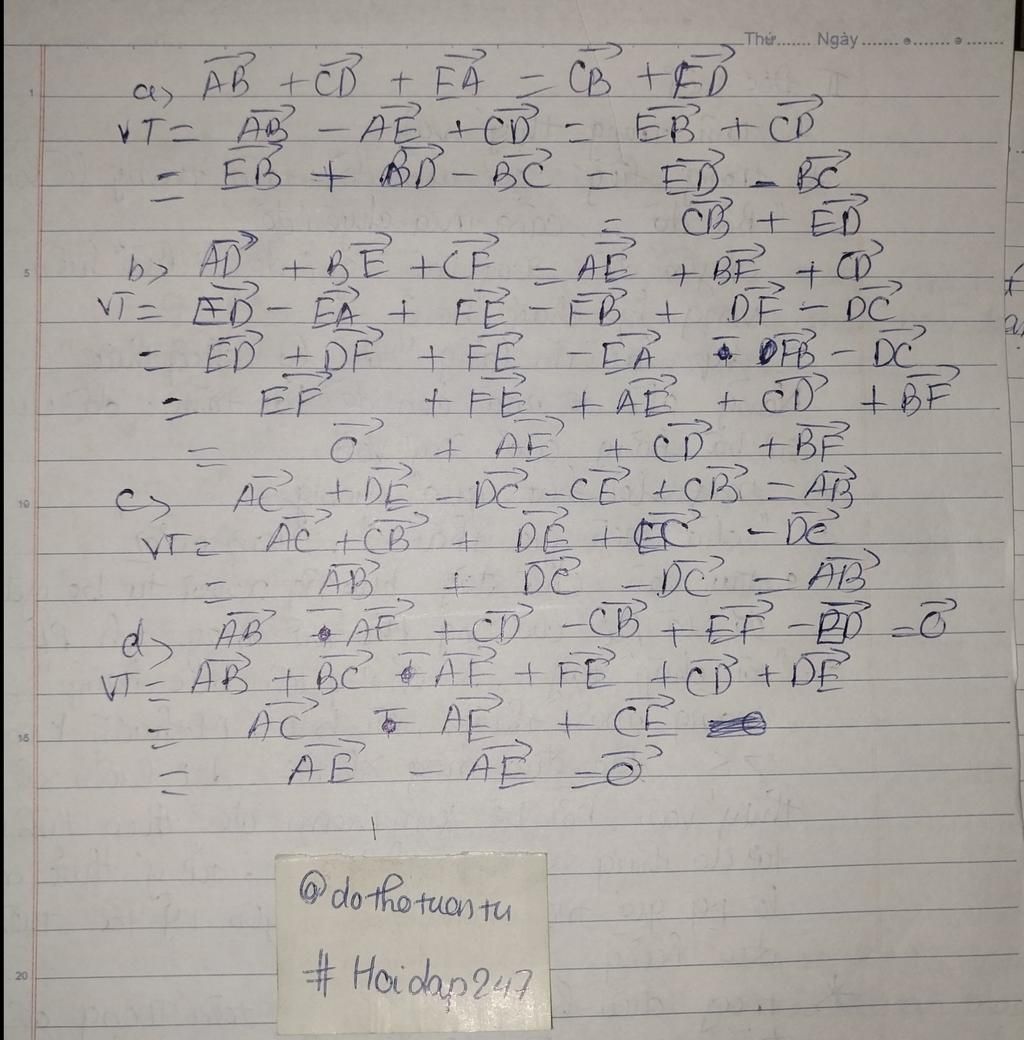 Thứ....... Ngày ....... ● ....... ● .......
a> AB⃗ + CD⃗ + EA⃗ = CB⃗ + ED⃗
VT = AB⃗ - AE⃗ + CD⃗ = EB⃗ + CD⃗
= EB⃗ + BD⃗ - BC⃗ = ED⃗ - BC⃗
= CB⃗ + ED⃗
b> AD⃗ + BE⃗ + CF⃗ = AE⃗ + BF⃗ + CD⃗
VT = ED⃗ - EA⃗ + FE⃗ - FB⃗ + DF⃗ - DC⃗
= ED⃗ + DF⃗ + FE⃗ - EA⃗ - FB⃗ - DC⃗
= EF⃗ + FE⃗ + AE⃗ + CD⃗ + BF⃗
= O⃗ + AE⃗ + CD⃗ + BF⃗
c> AC⃗ + DE⃗ - DC⃗ - CE⃗ + CB⃗ = AB⃗
VT = AC⃗ + CB⃗ + DE⃗ + EC⃗ - DC⃗
= AB⃗ + DC⃗ - DC⃗ = AB⃗
d> AB⃗ - AF⃗ + CD⃗ - CB⃗ + EF⃗ - ED⃗ = O⃗
VT = AB⃗ + BC⃗ - AF⃗ + FE⃗ + CD⃗ + DE⃗
= AC⃗ - AE⃗ + CE⃗
= AE⃗ - AE⃗ = O⃗
@dothotuantu
# Hoidap247
1
5
10
15
20